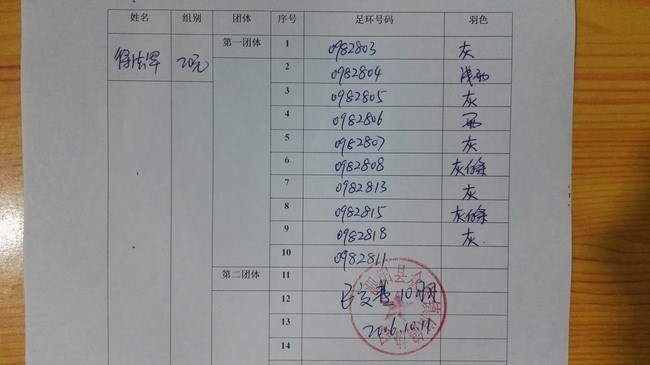 姓名 组别 团体 序号 足环号码 羽色
20元 第一团体 1 0982803 灰
2 0982804
3 0982805 灰
4 0982806
5 0982807 灰
6 0982808 灰白条
7 0982813 灰
8 0982815 灰白条
9 0982818 灰
10 0982811
第二团体 11
12 已交费 10羽
13 2016.10.11
14